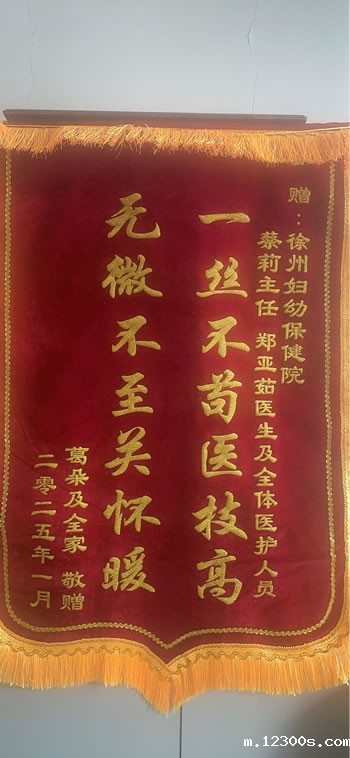 赠：徐州妇幼保健院
蔡莉主任 郑亚茹医生及全体医护人员
一丝不苟医技高
无微不至关怀暖
葛朵及全家 敬赠
二零二五年一月
m.12300s.com